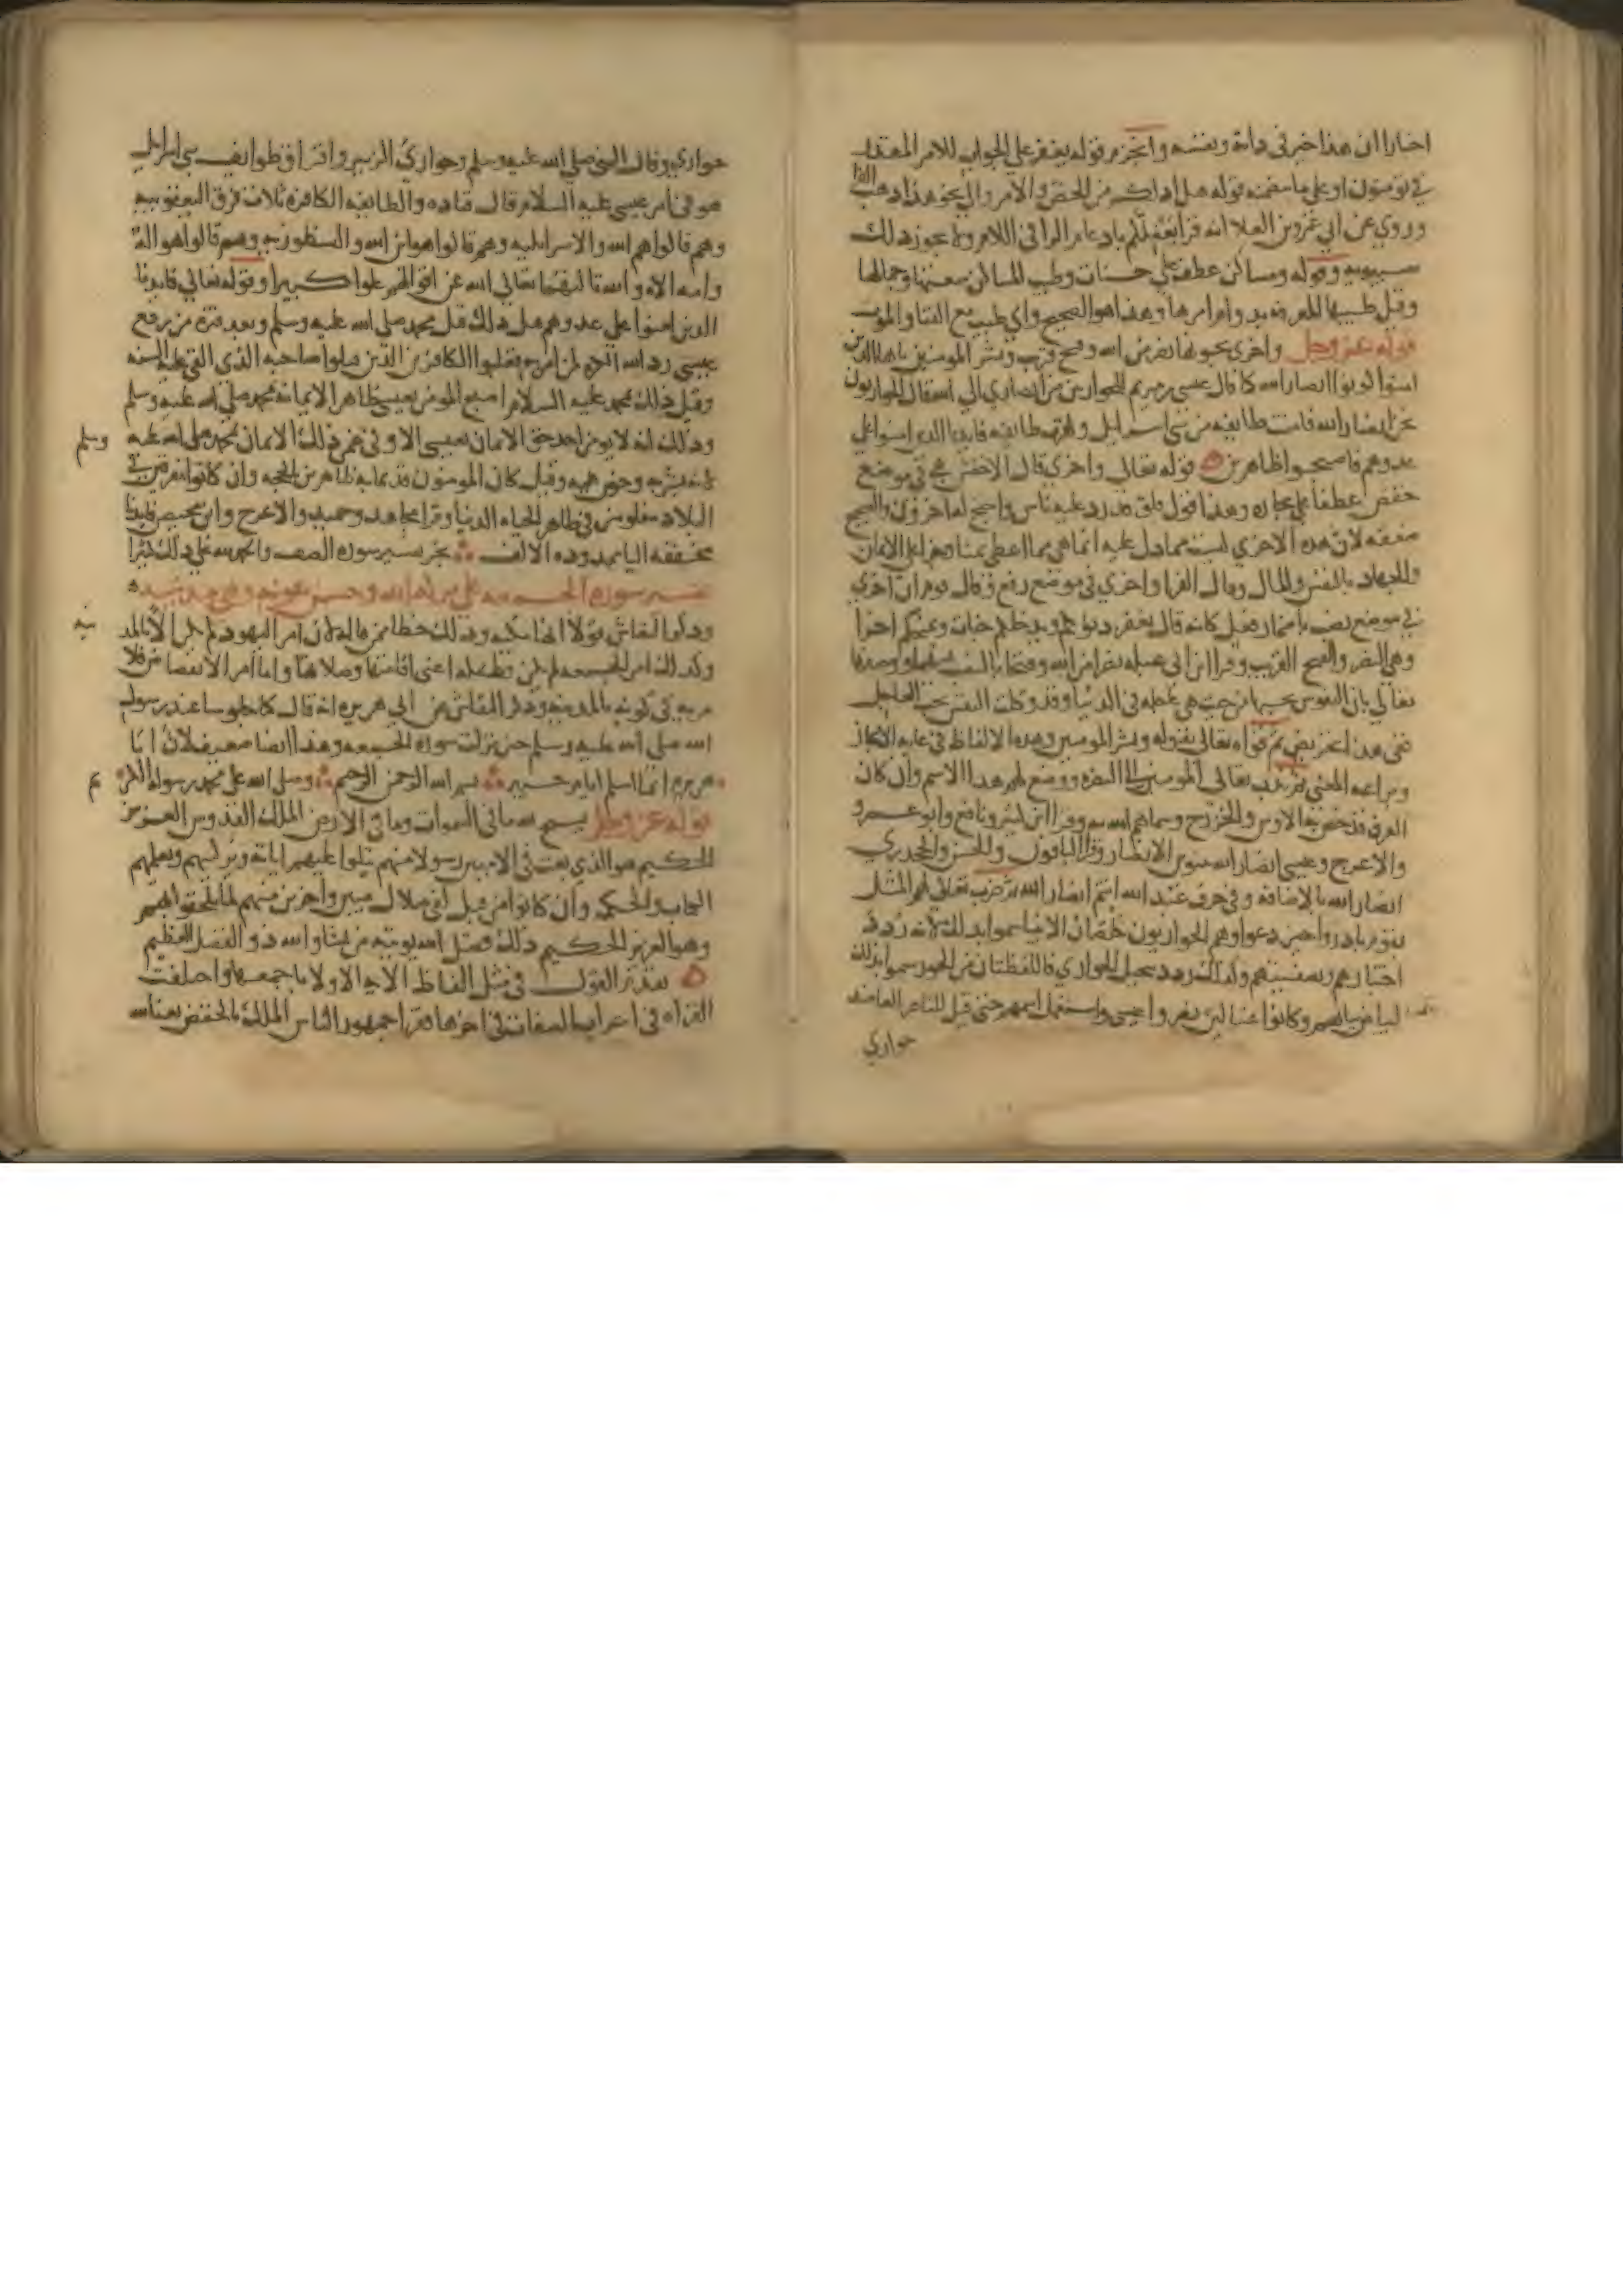 اخبارا ان هذا خير في ذاته ونفسه وانجزم قوله يغفر على الجواب للامر المقدر
في تومنون او على ما يتضمنه قوله هل ادلكم من الحض والامر والى نحو هذا ذهب الفرا
وروي عن ابي عمرو بن العلا انه قرا يغفر لكم بادغام الرا في اللام ولا يجوز ذلك
سيبويه وقوله ومساكن عطف على جنات وطيب المساكن سعتها وجمالها
وقيل طيبها المعرفة بدوام امرها وهذا هو الصحيح واي طيب مع الفنا والموت
قوله عز وجل واخرى تحبونها نصر من الله وفتح قريب وبشر المومنين يا ايها الذين
امنوا كونوا انصار الله كما قال عيسى بن مريم للحواريين من انصاري الى الله قال الحواريون
نحن انصار الله فامنت طايفه من بني اسرايل وكفرت طايفه فايدنا الذين امنوا على
عدوهم فاصبحوا ظاهرين قوله تعالى واخرى قال الاخفش هي في موضع
خفض عطفا على تجارة وهذا قول قلق قد رد عليه ناس واحتج له اخرون والصحيح
ضعفه لان هذه الاخرى ليست مما دل عليه انما هي مما اعطى ثمنا وجزا على الايمان
والجهاد بالنفس والمال وقال الفرا واخرى في موضع رفع وقال قوم ان اخرى
في موضع نصب باضمار فعل كانه قال يغفر ذنوبكم ويدخلكم جنات ويمنحكم اخرى
وهي النصر والفتح القريب وقرا ابن ابي عبله نصرا من الله وفتحا بالنصب
تعالى بان النفوس تحبها من حيث هي عاجله في الدنيا وقد وكلت النفس بحب العاجل
ففي هذا تحريض ثم قواه تعالى بقوله وبشر المومنين وهذه الالفاظ في غاية الايجاز
وبراعه المعنى ثم ندب تعالى المومنين الى النصره ووضع لهم هذا الاسم وان كان
العرف قد خص به الاوس والخزرج وسماهم الله به وقرا ابن كثير ونافع وابو عمرو
والاعرج وعيسى انصارا لله بتنوين الانصار وقرا الباقون والحسن والجحدري
انصار الله بالاضافه وفي حرف عبد الله انتم انصار الله ثم ضرب تعالى لهم المثل
بقوم بادروا حين دعوا وهم الحواريون خلصان الانبيا سموا بذلك لانه ردد
اختبارهم وتصفيتهم وكذلك ردد تنخيل الحواري فاللفظتان من الحور سموا بذلك
لبياض ثيابهم وكانوا غسالين نصروا عيسى واستعمل اسمهم حتى قيل للناصر العاضد
حواري
حواري وقال النبي صلى الله عليه وسلم وحواري الزبير وافتراق طوايف بني اسرايل
هو في امر عيسى عليه السلام قال قتاده والطايفه الكافره ثلاث فرق اليعقوبيه
وهم قالوا هو الله والاسراييليه وهم قالوا هو ابن الله والنسطوريه وهم قالوا هو اله
وامه اله والله ثالثهما تعالى الله عن اقوالهم علوا كبيرا وقوله تعالى فايدنا
الذين امنوا على عدوهم قيل ذلك قبل محمد صلى الله عليه وسلم وبعد فترة من رفع
عيسى رد الله الكره لمن امن به فغلبوا الكافرين الذين قتلوا صاحبه الذي القي عليه الشبه
وقيل ذلك بمحمد عليه السلام اصبح المومن بعيسى ظاهرا لايمانه بمحمد صلى الله عليه وسلم
وذلك انه لا يومن احد حق الايمان بعيسى الا وفي ضمن ذلك الايمان بمحمد صلى الله عليه وسلم
لانه بشر به وحرض عليه وقيل كان المومنون قديما به ظاهرين بالحجه وان كانوا مفرقين في
البلاد مغلوبين في ظاهر الحياه الدنيا وقرا مجاهد وحميد والاعرج وابن محيصن فايدنا
مخففه اليا ممدوده الالف نجز تفسير سوره الصف والحمد لله على ذلك كثيرا
تفسير سوره الجمعه على بركه الله وحسن عونه وهي مدنيه
وذكر النقاش قولا انها مكيه وذلك خطا من قاله لان امر اليهود لم يكن الا بالمدينه
وكذلك امر الجمعه لم يكن قط بمكه اعني اقامتها وصلاتها واما امر الانفضاض فلا
مريه في كونه بالمدينه وذكر النقاش عن ابي هريره انه قال كنا جلوسا عند رسول
الله صلى الله عليه وسلم حين نزلت سوره الجمعه وهذا ايضا ضعيف لان ابا
هريره انما اسلم ايام خيبر بسم الله الرحمن الرحيم وصلى الله على محمد رسوله الكريم
قوله عز وجل يسبح لله ما في السموات وما في الارض الملك القدوس العزيز
الحكيم هو الذي بعث في الاميين رسولا منهم يتلوا عليهم اياته ويزكيهم ويعلمهم
الكتاب والحكمه وان كانوا من قبل لفي ضلال مبين واخرين منهم لما يلحقوا بهم
وهو العزيز الحكيم ذلك فضل الله يوتيه من يشا والله ذو الفضل العظيم
تقدم القول في مثل الفاظ الايه الاولى باجمعها واختلفت
القراه في اعراب الصفات في اخرها فقرا جمهور الناس الملك بالخفض نعتا لله